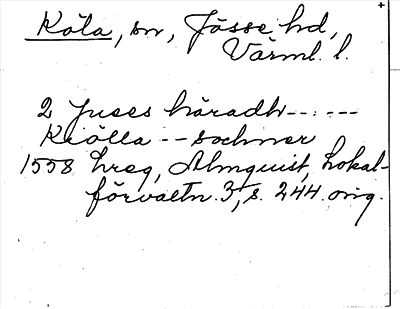 Köla, sn, Jösse hd,
Värml. l.
2 Juses häradh -----
Kiölla -- sochner
1558 hreg, Almquist, Lokal-
förvaltn. 3, s. 244. orig.